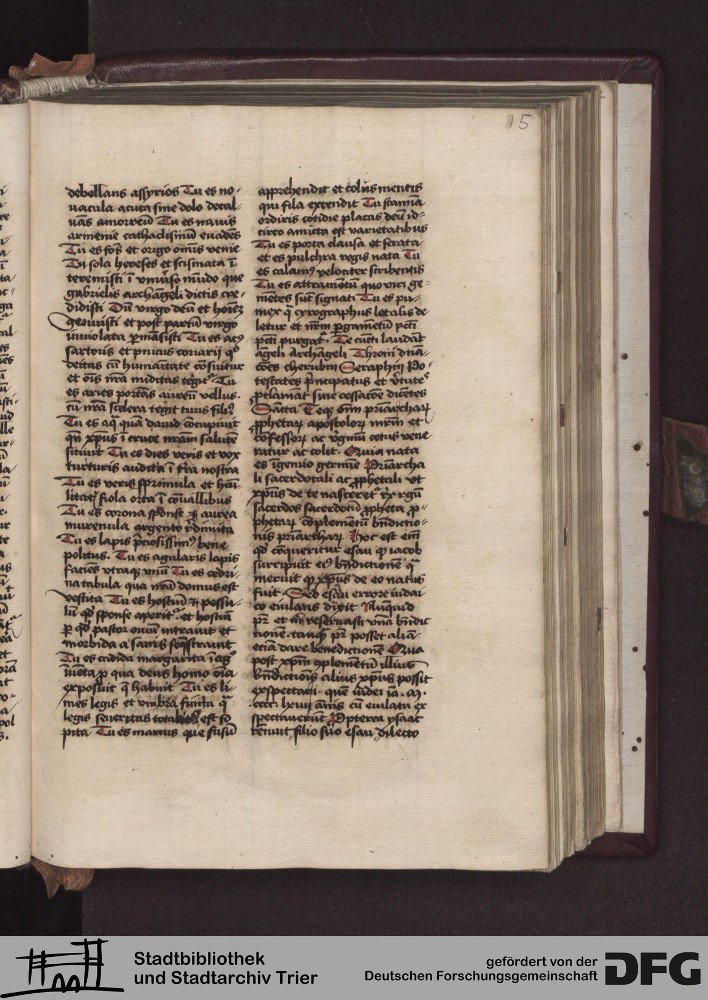 15
debellans assyrios Tu es no-
uacula acuta sine dolo decal-
uās amorreū Tu es nauis
armenie cathaclismū euadēs
Tu es fōs et origo omīs venie
Tu sola hereses et scismata ī
teremisti ī vniuso mūdo que
gabrielis archāgeli dictis cre-
didisti Dū virgo deū et hoīez
genuisti et post partū virgo
inuiolata pmāsisti Tu es
sartoris et coriarii
deitas cū humanitate
et oīs nrā nuditas tegit Tu
es aries portās aureū vellus
cū nrā scelera tegit tuus fili9
Tu es aq quā dauid
qn xpus ī cruce nrām salutē
sitiuit Tu es dies veris et vox
turturis audita ī tra nostra
Tu es veris et hūi
litatis orta ī cōuallibus
Tu es corona aurea
murenula argento
Tu es lapis bene
politus. Tu es agularis lapis
faciēs vtraqz vnū Tu es cedri
na tabula qua nrā domus est
vestita Tu es hostiū
qd sponse aperit et hostiū
p qd pastor ouiū intrauit et
morbida a sanis
Tu es cādida margarita
iuēta p qua deus homo oīa
exposuit q habuit Tu es li-
mes legis et vmbra
legis seueritas est so
pita Tu es manus que fusū
apprehendit et colus mentis
qui fila extendit Tu stamīa
ordiris cotidie placās deū id-
circo amicta est varietatibus
Tu es porta clausa et serata
et es pulchra regis nata Tu
es calamus velociter scribentis
Tu es quo vici ge-
mētes sūt signati Tu es pu-
mex q cyrographus letalis de
letur et nrm pgamenū
pcti purgat Te cūcti laudāt
āgeli Archāgeli Throni dnā-
cōes cherubin Seraphin Po-
testates pncipatus et vtute
pclamāt sine cessatōe dicētes
Sācta Teqz patriarchar
pphetar apostolor mrm et
cōfessor ac vgīnū cetus vene
ratur ac colit. Quia nata
es īgenuo germīe Priarcha
li sacerdotali ac pphetali vt
xpus de te nasceret rex
sacerdos sacerdotū ppheta p-
phetar cōplemētū bndictio-
nis priarchar Hoc est
qd cōqueritur esau q iacob
surripuit ei9 bndictionē
meruit q xpus de eo natus
fuit. Sed esau errore iudai
co eiulans dixit Nūquid
pr et m reseruasti vnā bndic
tionē pr posset aliā
etiā dare benedictionē Quia
post xpm cplementū illius
bndictionis alius xpus possit
expectari quē iudei ia. m.
cccc. lxviii annis cū eiulatu ex
spectauerūt Propterea ysaac
renuit filio suo esau dilecto
Stadtbibliothek
und Stadtarchiv Trier
gefördert von der
Deutschen Forschungsgemeinschaft
DFG